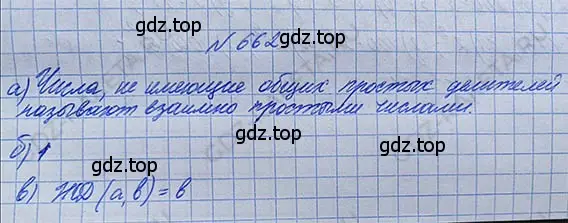 gdz.top
№ 662
а) Числа, не имеющие общих простых делителей
называют взаимно простыми числами.
gdz.top
б) 1
gdz.top
в) НОД (а, в) = в
gdz.top